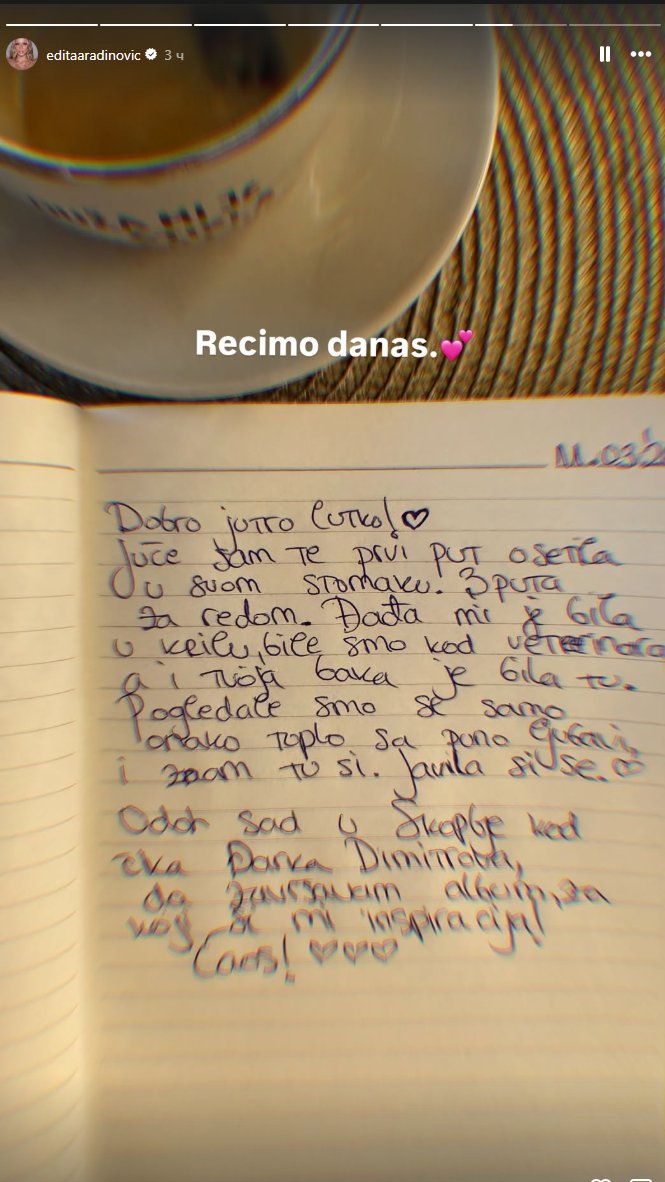 editaaradinovic 3 ч
Recimo danas.💕
11.03.2
Dobro jutro lutko!♡
Juče sam te prvi put osetila
u svom stomaku. 3 puta
za redom. Dada mi je bila
u krilu, bile smo kod veterinara
a i tvoja baka je bila tu.
Pogledale smo se samo
onako toplo sa puno ljubavi,
i znam tu si. Javila si se.♡
Odoh sad u Skoplje kod
čika Darka Dimitrova,
da završavam album, za
koji si mi inspiracija!
Caos! ♡♡♡